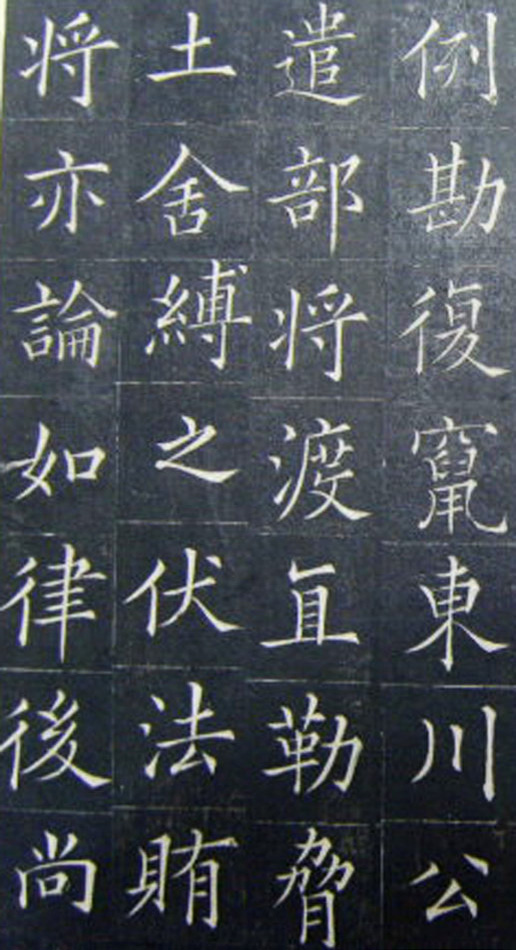 例勘復竄東川公
遣部将渡直勒脅
土舍縛之伏法賄
将亦論如律後尚